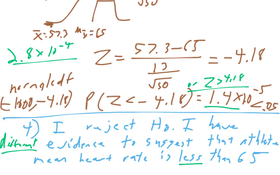 x̄=57.3 μx̄=65
√50
2.8 x 10⁻⁴
Z = 57.3-65 / 13/√50 = -4.18
normalcdf
(-1000,-4.18)
P(Z < -4.18) = 1.4x10⁻⁵ < .05
or Z > 4.18
4) I reject Ho. I have
different evidence to suggest that
mean heart rate is less than 65